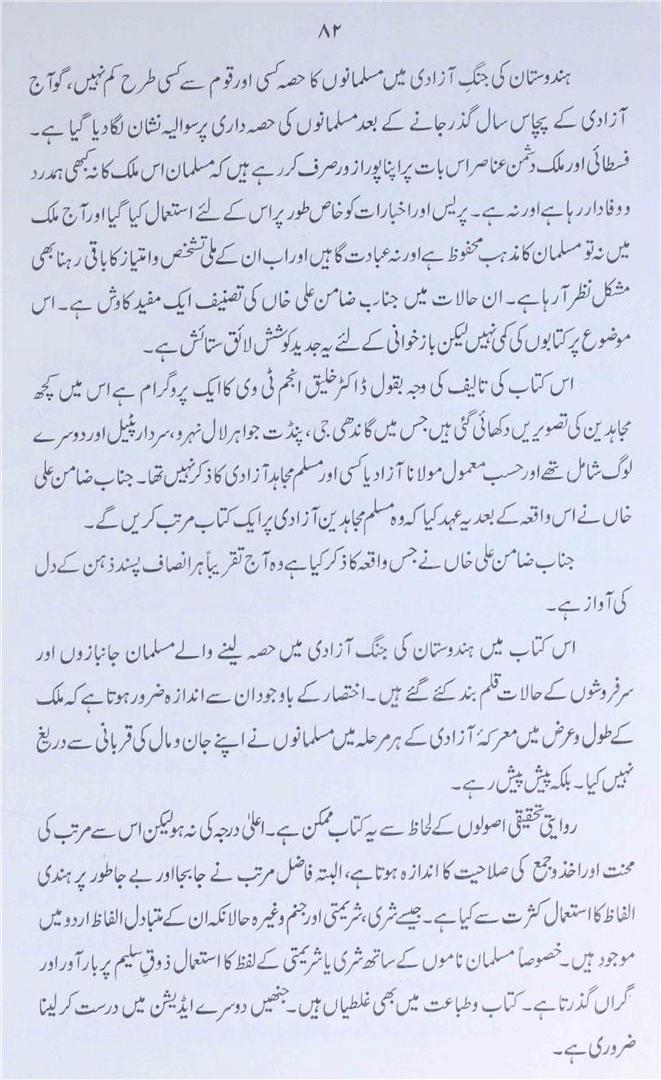 ۸۲
ہندوستان کی جنگِ آزادی میں مسلمانوں کا حصہ کسی اور قوم سے کسی طرح کم نہیں، گو آج
آزادی کے پچاس سال گذر جانے کے بعد مسلمانوں کی حصہ داری پر سوالیہ نشان لگا دیا گیا ہے۔
فسطائی اور ملک دشمن عناصر اس بات پر اپنا پورا زور صرف کر رہے ہیں کہ مسلمان اس ملک کا نہ کبھی ہمدرد
و وفادار رہا ہے اور نہ ہے۔ پریس اور اخبارات کو خاص طور پر اس کے لئے استعمال کیا گیا اور آج ملک
میں نہ تو مسلمان کا مذہب محفوظ ہے اور نہ عبادت گاہیں اور اب ان کے ملی تشخص و امتیاز کا باقی رہنا بھی
مشکل نظر آ رہا ہے۔ ان حالات میں جناب ضامن علی خاں کی تصنیف ایک مفید کاوش ہے۔ اس
موضوع پر کتابوں کی کمی نہیں لیکن باز خوانی کے لئے یہ جدید کوشش لائق ستائش ہے۔
اس کتاب کی تالیف کی وجہ بقول ڈاکٹر خلیق انجم ٹی وی کا ایک پروگرام ہے اس میں کچھ
مجاہدین کی تصویریں دکھائی گئی ہیں جس میں گاندھی جی، پنڈت جواہر لال نہرو، سردار پٹیل اور دوسرے
لوگ شامل تھے اور حسب معمول مولانا آزاد یا کسی اور مسلم مجاہد آزادی کا ذکر نہیں تھا۔ جناب ضامن علی
خاں نے اس واقعہ کے بعد یہ عہد کیا کہ وہ مسلم مجاہدین آزادی پر ایک کتاب مرتب کریں گے۔
جناب ضامن علی خاں نے جس واقعہ کا ذکر کیا ہے وہ آج تقریباً ہر انصاف پسند ذہن کے دل
کی آواز ہے۔
اس کتاب میں ہندوستان کی جنگ آزادی میں حصہ لینے والے مسلمان جانبازوں اور
سرفروشوں کے حالات قلم بند کئے گئے ہیں۔ اختصار کے باوجود ان سے اندازہ ضرور ہوتا ہے کہ ملک
کے طول و عرض میں معرکۂ آزادی کے ہر مرحلہ میں مسلمانوں نے اپنے جان و مال کی قربانی سے دریغ
نہیں کیا۔ بلکہ پیش پیش رہے۔
روایتی تحقیقی اصولوں کے لحاظ سے یہ کتاب ممکن ہے۔ اعلیٰ درجہ کی نہ ہو لیکن اس سے مرتب کی
محنت اور اخذ و جمع کی صلاحیت کا اندازہ ہوتا ہے، البتہ فاضل مرتب نے جا بجا اور بے جا طور پر ہندی
الفاظ کا استعمال کثرت سے کیا ہے۔ جیسے شری، شریمتی اور جنم وغیرہ حالانکہ ان کے متبادل الفاظ اردو میں
موجود ہیں۔ خصوصاً مسلمان ناموں کے ساتھ شری یا شریمتی کے لفظ کا استعمال ذوقِ سلیم پر بار آور اور
گراں گذرتا ہے۔ کتاب و طباعت میں بھی غلطیاں ہیں۔ جنھیں دوسرے ایڈیشن میں درست کر لینا
ضروری ہے۔